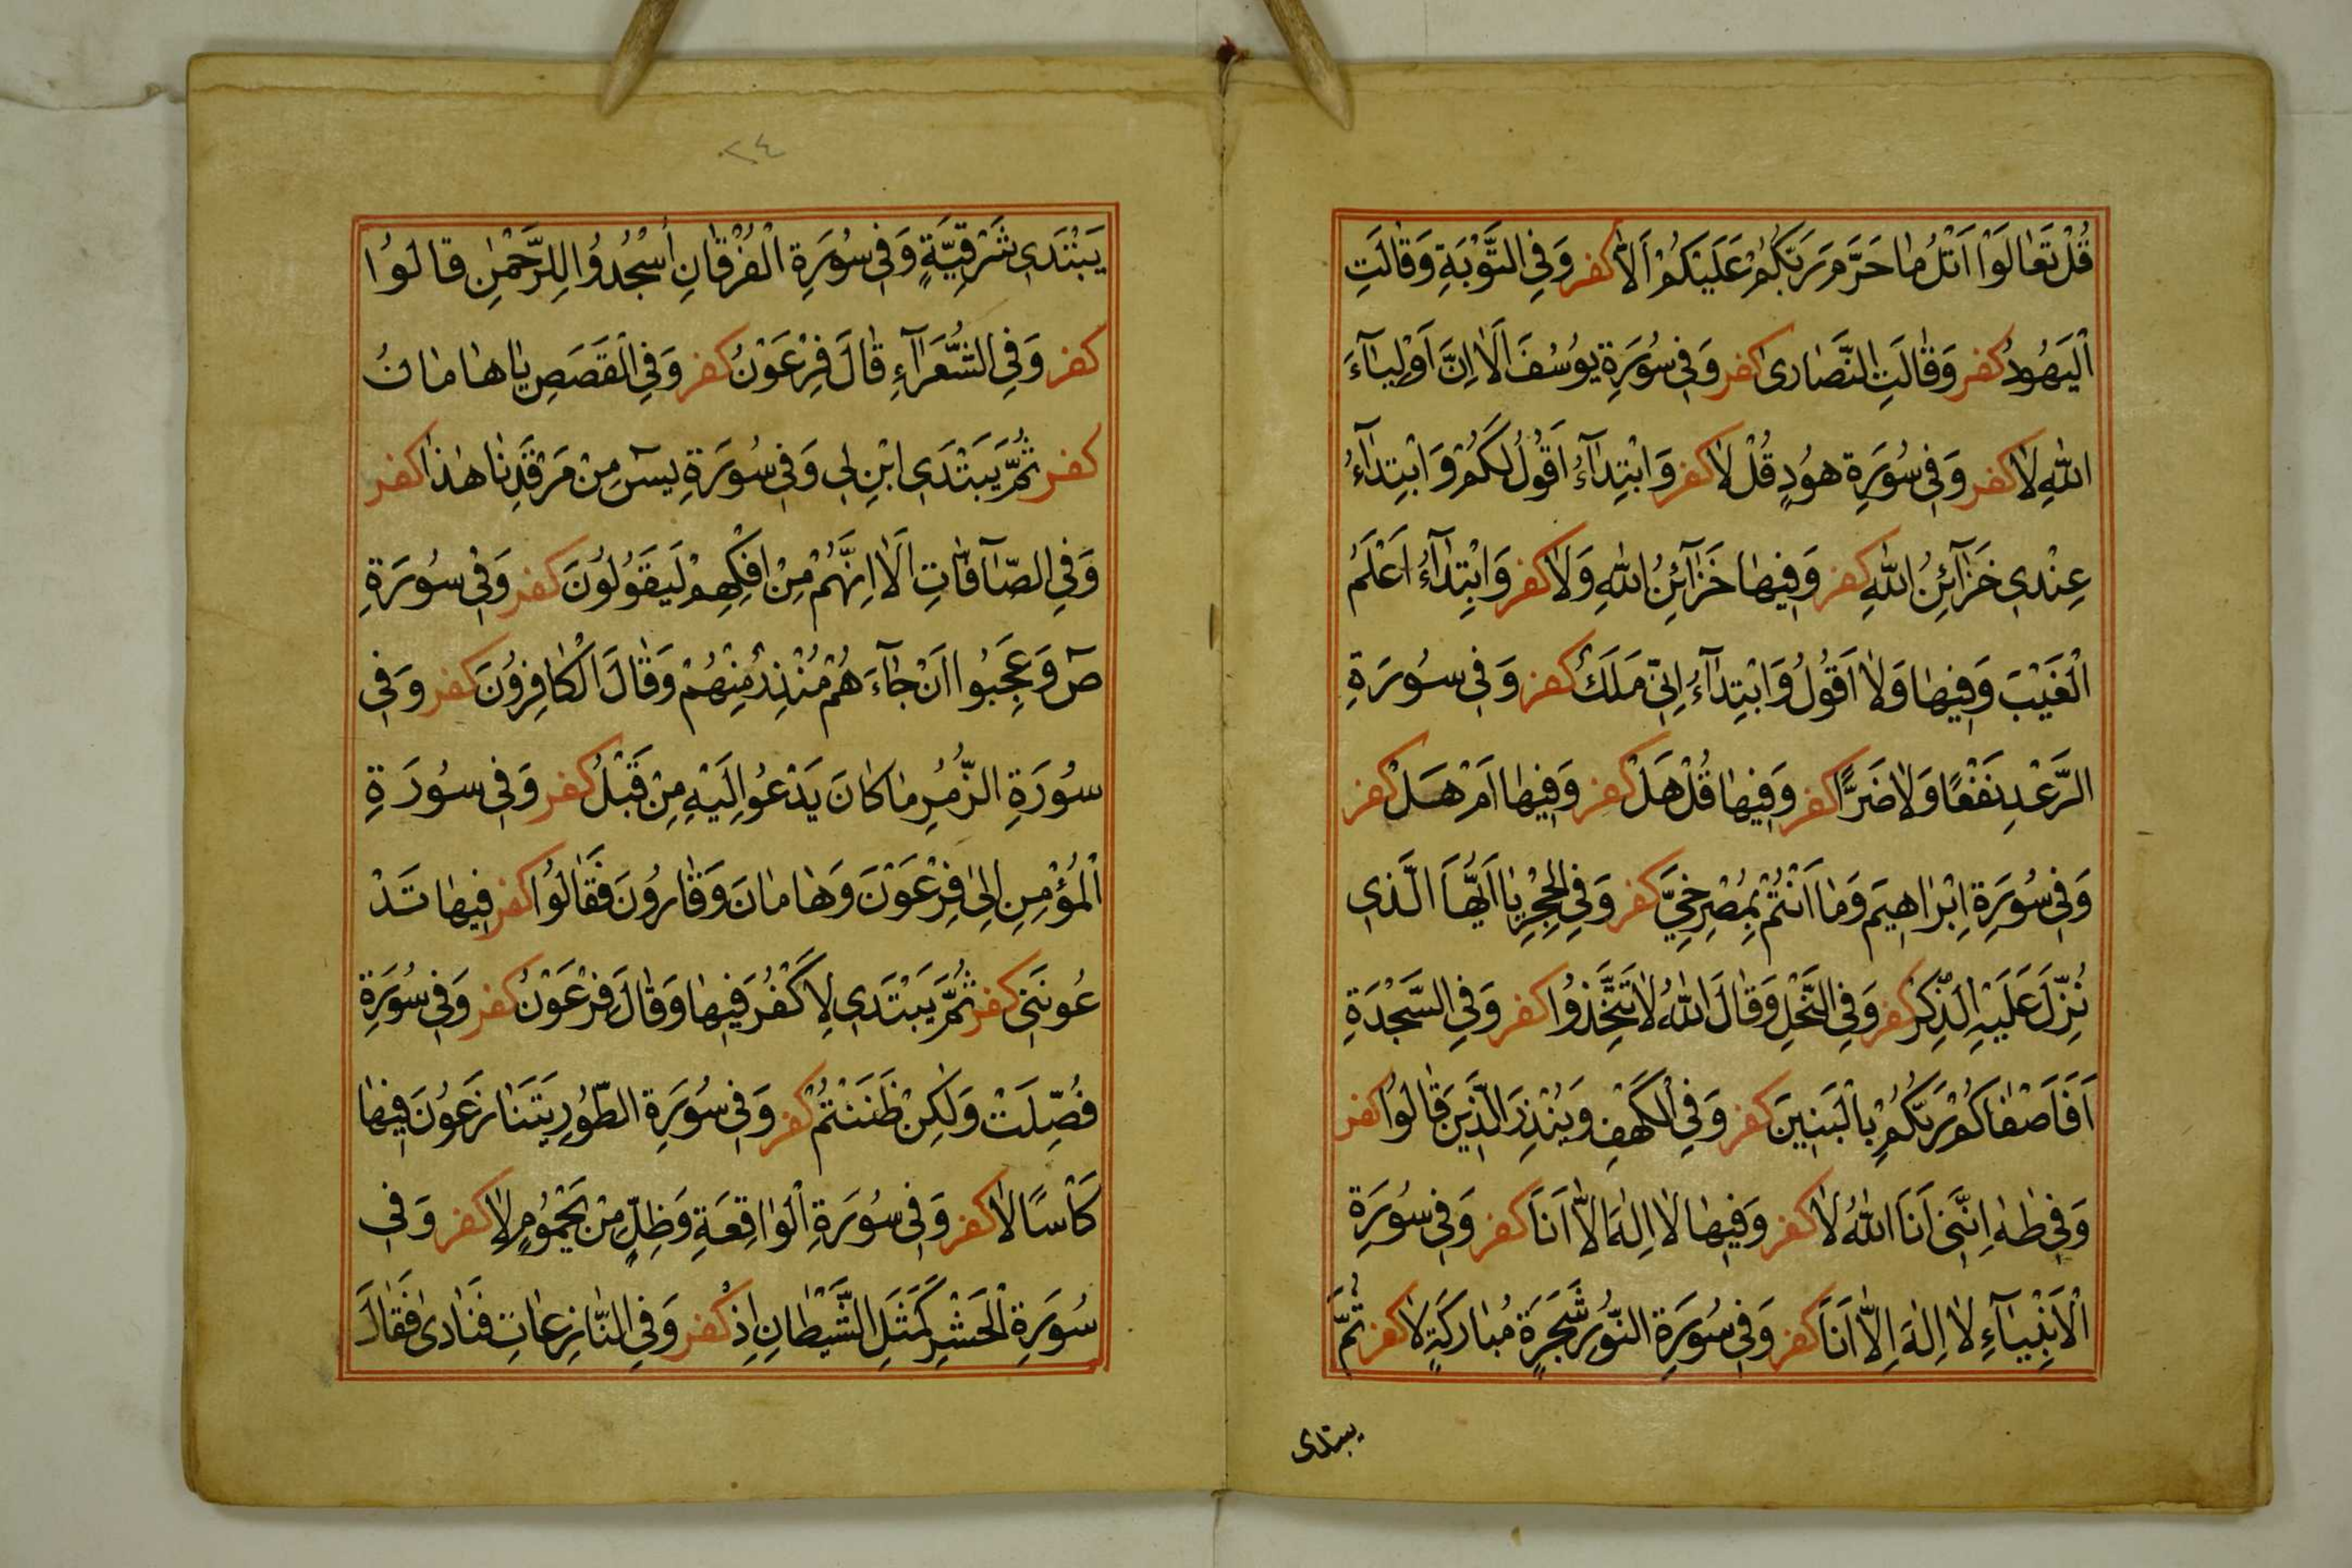 قُلْ تَعٰالَوْا اَتْلُ مٰا حَرَّمَ رَبُّكُمْ عَلَيْكُمْ اَلاّٰ كفر وَفِي التَّوْبَةِ وَقٰالَتِ
الْيَهُودُ كفر وَقٰالَتِ النَّصٰارىٰ كفر وَفِي سُورَةِ يوُسُفَ اَلاٰ اِنَّ اَوْلِيٰآءَ
اللّٰهِ لاٰ كفر وَفِي سُورَةِ هوُدٍ قُلْ لاٰ كفر وَابْتِدٰآءُ اَقُولُ لَكُمْ وَابْتِدٰآءُ
عِنْدِي خَزٰآئِنُ اللّٰهِ كفر وَفِيهٰا خَزٰآئِنُ اللّٰهِ وَلاٰ كفر وَابْتِدٰآءُ اَعْلَمُ
الْغَيْبَ وَفِيهٰا وَلاٰ اَقُولُ وَابْتِدٰآءُ اِنّي مَلَكٌ كفر وَفِي سُورَةِ
الرَّعْدِ نَفْعًا وَلاٰ ضَرًّا كفر وَفِيهٰا قُلْ هَلْ كفر وَفِيهٰا اَمْ هَلْ كفر
وَفِي سُورَةِ اِبْرٰاهِيمَ وَمٰا اَنْتُمْ بِمُصْرِخِيَّ كفر وَفِي الْحِجْرِ يٰا اَيُّهَا الَّذِي
نُزِّلَ عَلَيْهِ الذِّكْرُ كفر وَفِي النَّحْلِ وَقٰالَ اللّٰهُ لاٰ تَتَّخِذُوا كفر وَفِي السَّجْدَةِ
اَفَاَصْفٰاكُمْ رَبُّكُمْ بِالْبَنِينَ كفر وَفِي الْكَهْفِ وَيُنْذِرَ الَّذِينَ قٰالُوا كفر
وَفِي طٰهٰ اِنَّنِي اَنَا اللّٰهُ لاٰ كفر وَفِيهٰا لاٰ اِلٰهَ اِلاّٰ اَنَا كفر وَفِي سُورَةِ
الْاَنْبِيٰآءِ لاٰ اِلٰهَ اِلاّٰ اَنَا كفر وَفِي سُورَةِ النُّورِ شَجَرَةٍ مُبٰارَكَةٍ لاٰ كفر ثُمَّ
يبتدى
٠٢٤
يَبْتَدِي شَرْقِيَّةٍ وَفِي سُورَةِ الْفُرْقٰانِ اُسْجُدُوا لِلرَّحْمٰنِ قالُوا
كفر وَفِي الشُّعَرَآءِ قٰالَ فِرْعَوْنُ كفر وَفِي الْقَصَصِ يٰا هٰامٰانُ
كفر ثُمَّ يَبْتَدِي ابْنِ لِي وَفِي سُورَةِ يسٓ مِنْ مَرْقَدِنٰا هٰذٰا كفر
وَفِي الصّٰآفّٰاتِ اَلاٰ اِنَّهُمْ مِنْ اِفْكِهِمْ لَيَقُولُونَ كفر وَفِي سُورَةِ
صٓ وَعَجِبُوا اَنْ جٰآءَهُمْ مُنْذِرٌ مِنْهُمْ وَقٰالَ الْكٰافِرُونَ كفر وَفِي
سُورَةِ الزُّمَرِ مٰا كٰانَ يَدْعُوا اِلَيْهِ مِنْ قَبْلُ كفر وَفِي سُورَةِ
الْمُؤْمِنِ اِلىٰ فِرْعَوْنَ وَهٰامٰانَ وَقٰارُونَ فَقٰالُوا كفر فِيهٰا تَدْ
عُونَنِي كفر ثُمَّ يَبْتَدِي لِاَكْفُرَ فِيهٰا وَقٰالَ فِرْعَوْنُ كفر وَفِي سُورَةِ
فُصِّلَتْ وَلٰكِنْ ظَنَنْتُمْ كفر وَفِي سُورَةِ الطّوُرِ يَتَنٰازَعُونَ فِيهٰا
كَأْسًا لاٰ كفر وَفِي سُورَةِ الْوٰاقِعَةِ وَظِلٍّ مِنْ يَحْمُومٍ لاٰ كفر وَفِي
سُورَةِ الْحَشْرِ كَمَثَلِ الشَّيْطٰانِ اِذْ كفر وَفِي النّٰازِعٰاتِ فَنٰادىٰ فَقٰالَ